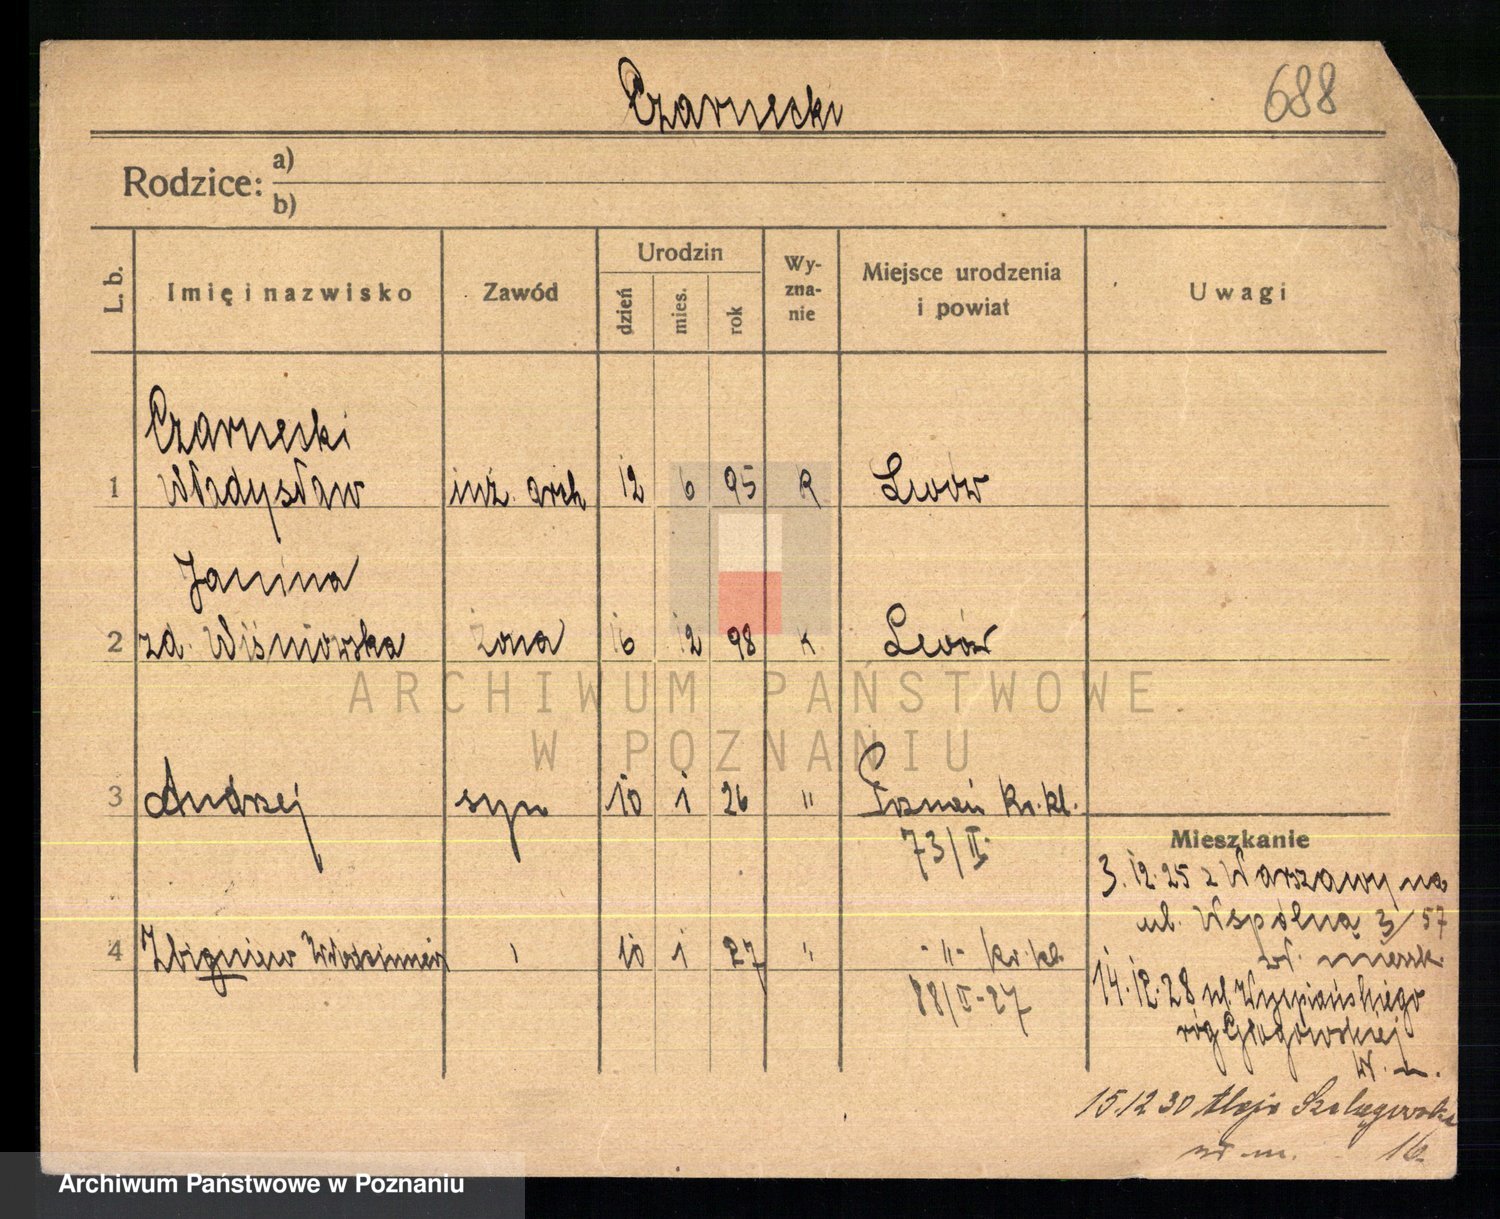 Czarnecki
688
Rodzice: a)
b)
L. b.
Imię i nazwisko
Zawód
Urodzin
dzień
mies.
rok
Wy-
zna-
nie
Miejsce urodzenia
i powiat
Uwagi
Czarnecki
1 Władysław inż. arch 12 6 95 R Lwów
Janina
2 zd. Wiśniowska żona 16 12 98 K Lwów
ARCHIWUM PAŃSTWOWE
W POZNANIU
3 Andrzej syn 10 1 26 " Poznań kr. kl.
73/II.
4 Zbigniew Włodzimierz " 10 1 27 " -"- kr. kl.
88/II-27
Mieszkanie
3.12.25 z Warszawy na
ul. Wspólna 3/57
wł. mieszk.
14.12.28 ul. Wyspiańskiego
róg Głogowskiej
w. m.
15.12 30 Aleja Szelągowska
wł. m. 16
Archiwum Państwowe w Poznaniu